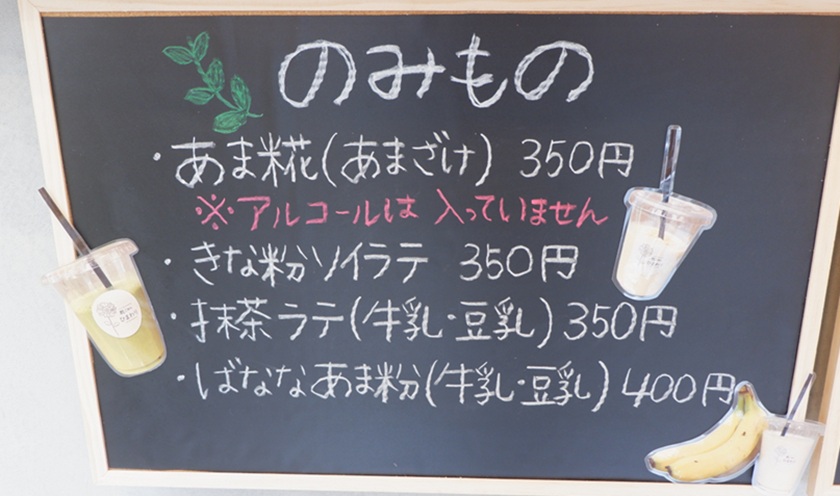 のみもの
・あま糀(あまざけ) 350円
※アルコールは入っていません
・きな粉ソイラテ 350円
・抹茶ラテ(牛乳・豆乳) 350円
・ばななあま粉(牛乳・豆乳) 400円